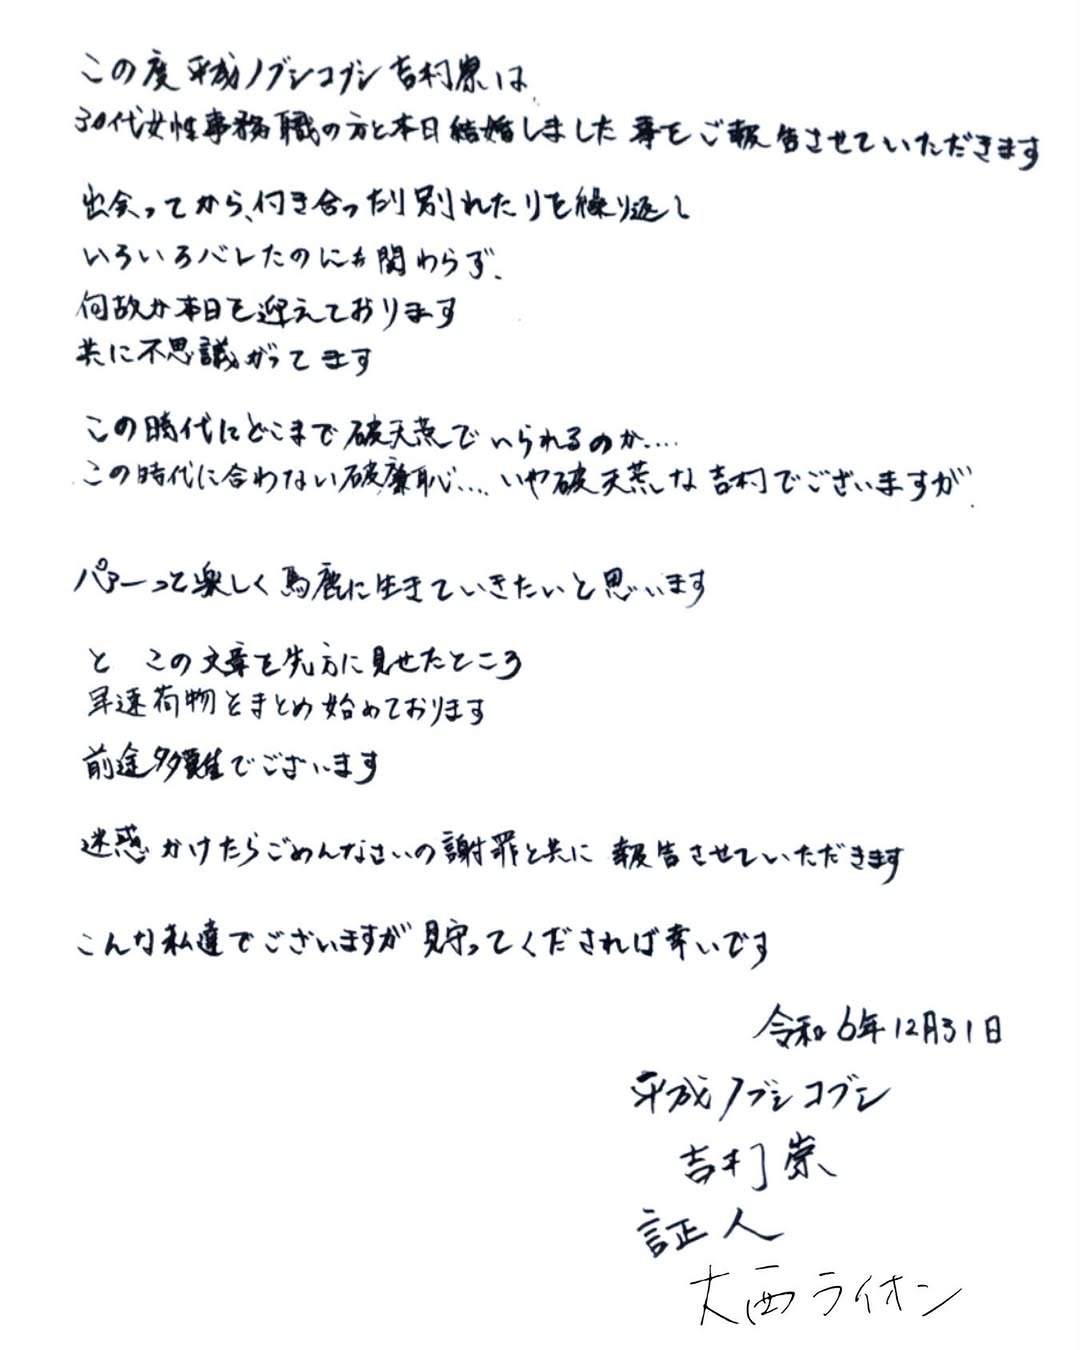 この度 平成ノブシコブシ 吉村崇は
30代女性事務職の方と本日結婚しました事をご報告させていただきます
出会ってから、付き合ったり別れたりを繰り返し
いろいろバレたのにも関わらず、
何故か本日を迎えております
共に不思議がってます
この時代にどこまで破天荒でいられるのか....
この時代に合わない破廉恥....いや破天荒な吉村でございますが
パァーっと楽しく馬鹿に生きていきたいと思います
と この文章を先方に見せたところ
早速荷物をまとめ始めております
前途多難でございます
迷惑かけたらごめんなさいの謝罪と共に 報告させていただきます
こんな私達でございますが見守ってくだされば幸いです
令和6年12月31日
平成ノブシコブシ
吉村崇
証人
大西ライオン